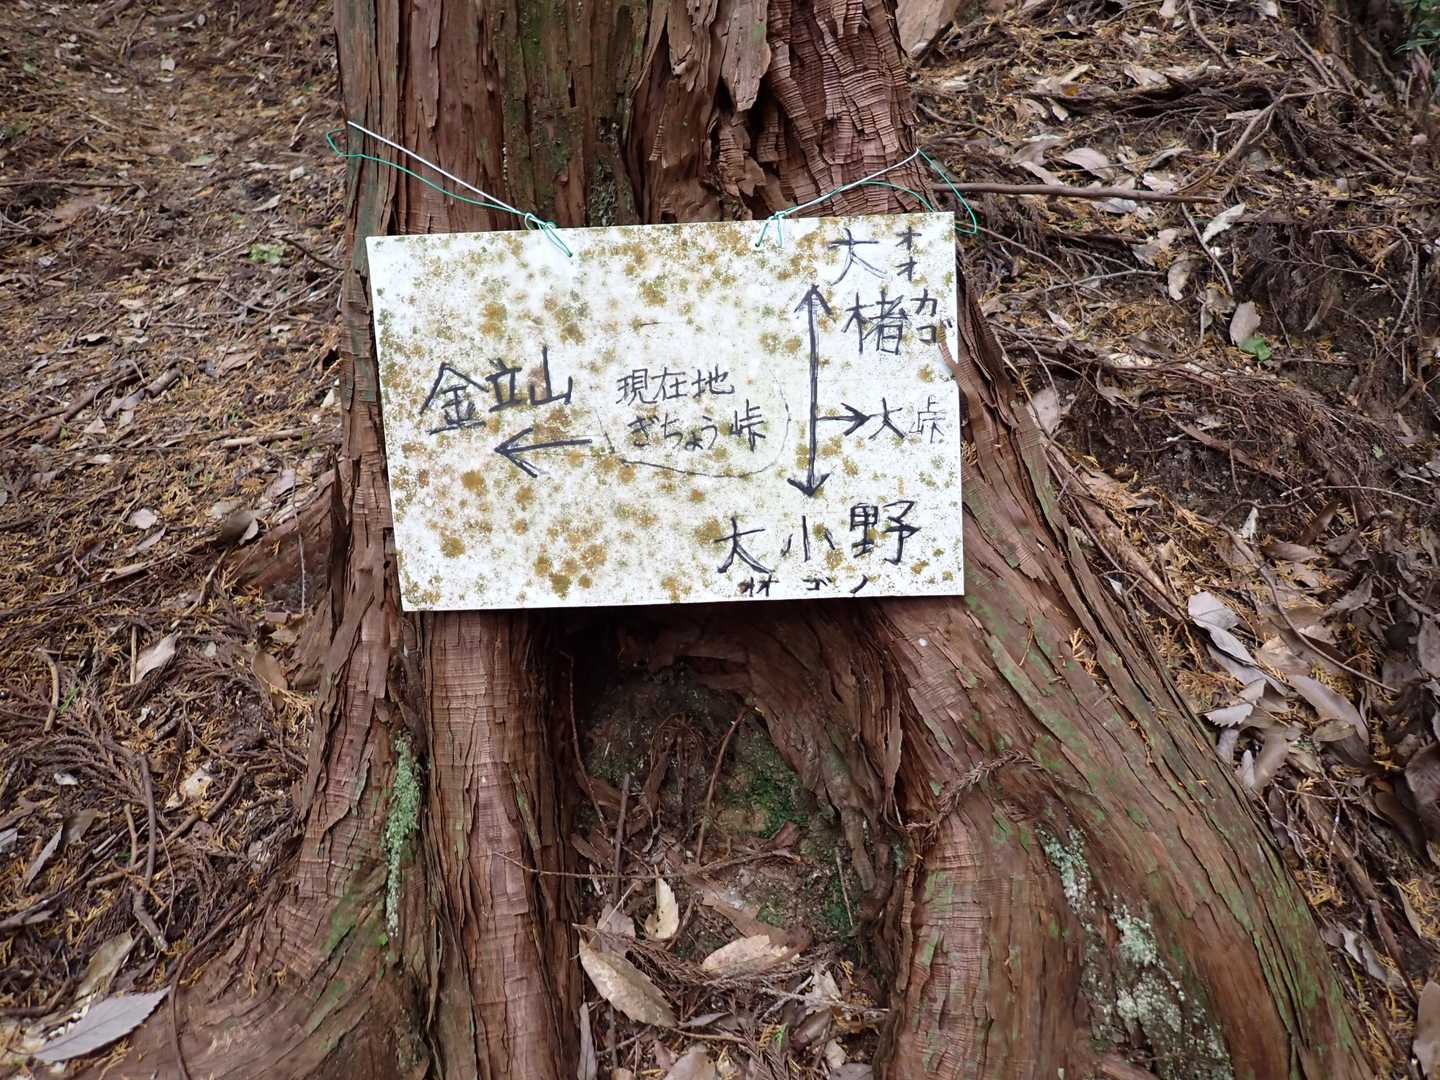 大楮
オオカゴ
金立山
←
現在地
ぎちょう峠
→大峠
大小野
オオゴノ